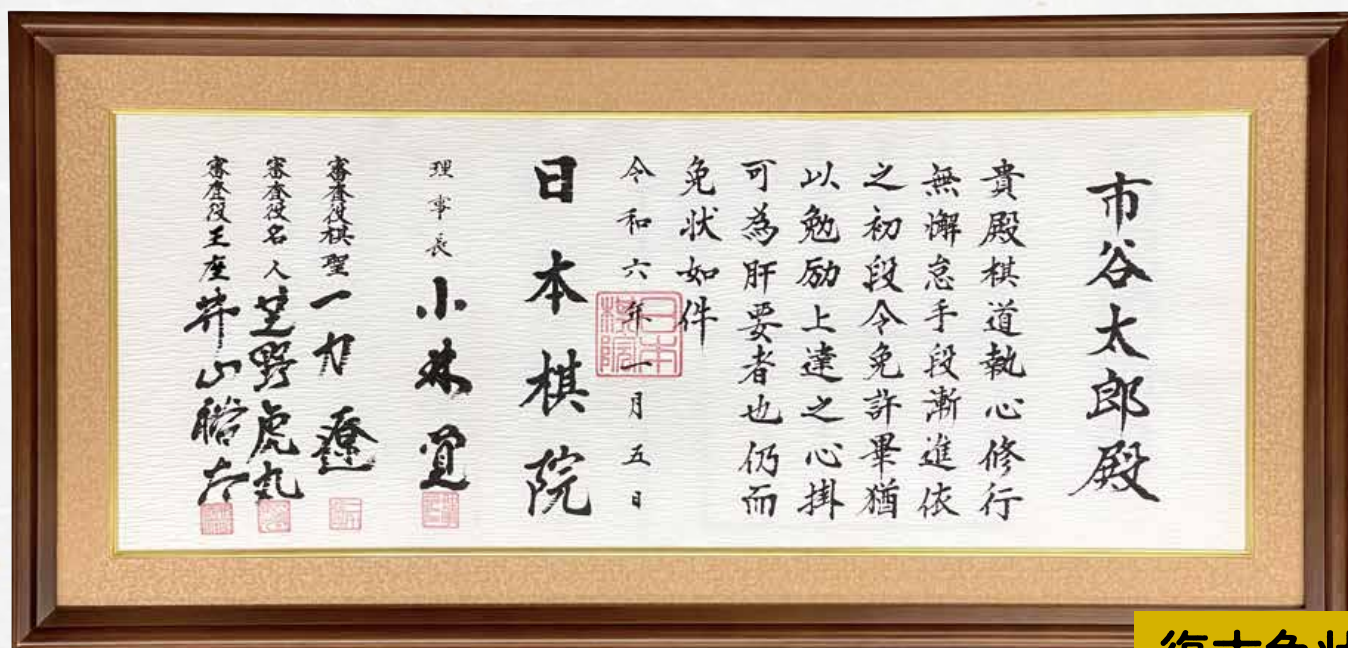 市谷太郎殿
貴殿棋道執心修行
無懈怠手段漸進依
之初段令免許畢猶
以勉励上達之心掛
可為肝要者也仍而
免状如件
令和六年一月五日
日本棋院
理事長 小林覚
審査役棋聖 一力遼
審査役名人 芝野虎丸
審査役王座 井山裕太
日本棋院